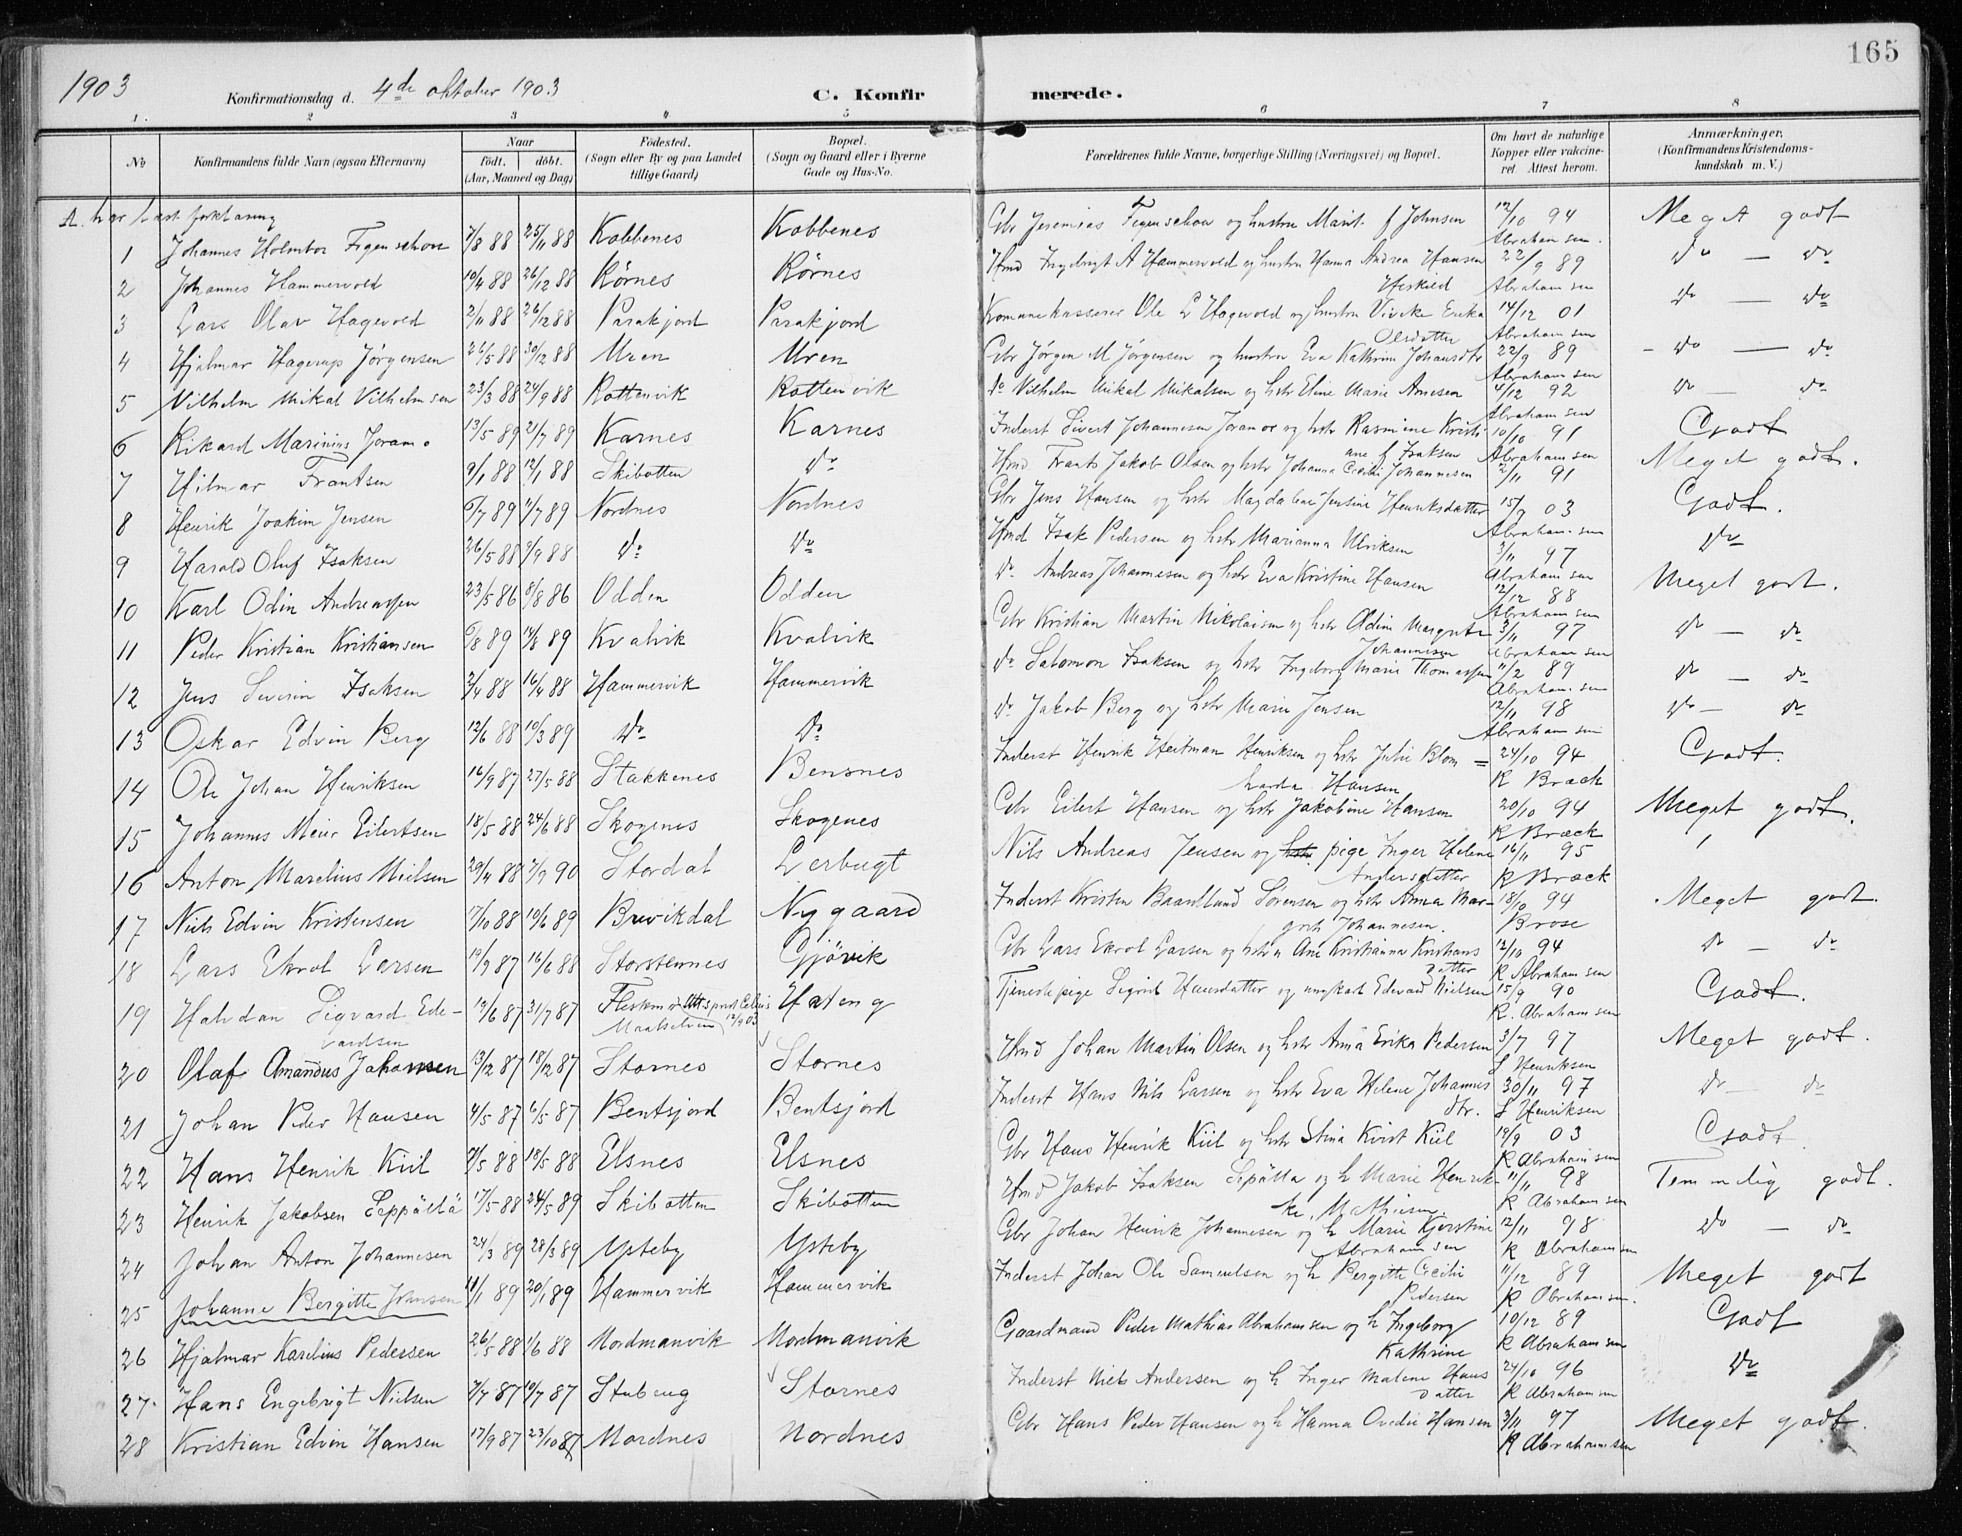 165
1903
Konfirmationsdag d. 4de oktober 1903
C. Konfirmerede.
1. 2 3 4 5 6 7 8
No
Konfirmandens fulde Navn (ogsaa Efternavn)
Naar
födt. döbt.
(Aar, Maaned og Dag)
Födested.
(Sogn eller By og paa Landet
tillige Gaard)
Bopæl.
(Sogn og Gaard eller i Byerne
Gade og Hus-No.
Forældrenes fulde Navne, borgerlige Stilling (Næringsvei) og Bopæl.
Om havt de naturlige
Kopper eller vakcine-
ret Attest herom.
Anmærkninger,
(Konfirmandens Kristendoms-
kundskab m. V.)
A. har læst forklaring
1 Johannes Holmbor Figenschou 7/8 88 25/11 88 Kobbenes Kobbenes Gbr Jeremias Figenschou og hustru Marit f Johnsen 12/10 94 Abrahamsen. Meget godt
2 Johannes Hammervold 10/4 88 26/12 88 Rørnes Rørnes Hmd Ingebrigt A Hammervold og hustru Hanna Andrea Hansen Heskild 22/9 89 Abrahamsen do — do
3 Lars Olav Hagevold 2/11 88 26/12 88 Parakjord Parakjord Komunekasserer Ole L Hagevold og hustru Vivike Erika Olsdatter 14/12 01 Abrahamsen do — do
4 Hjalmar Hagerup Jörgensen 26/5 88 30/12 88 Uren Uren Gbr Jörgen M Jörgensen og hustru Eva Kathrine Johansdtr 22/9 89 Abrahamsen - do — do
5 Vilhelm Mikal Vilhelmsen 23/3 88 24/9 88 Rottenvik Rottenvik do Vilhelm Mikal Mikalsen og hstr Eline Marie Arnesen 4/12 92 Abrahamsen do do
6 Rikard Marinius Joramo 13/5 89 21/7 89 Karnes Karnes Inderst Sivert Johannesen Joramo og hstr Rasmine Kristiane f Isaksen 10/10 91 Abrahamsen Godt
7 Hilmar Frantsen 9/1 88 12/1 88 Skibotten do Hmd Frants Jakob Olsen og hstr Johanna Cecilie Johannesen 2/11 91 Meget godt.
8 Henrik Joakim Jensen 6/7 89 11/7 89 Nordnes Nordnes Gbr Jens Hansen og hstr Magdalene Jensine Henriksdatter 15/9 03 Abrahamsen Godt.
9 Harald Oluf Isaksen 26/5 88 9/9 88 do do Hmd Isak Pedersen og hstr Marianna Ulriksen 3/11 97 Abrahamsen do
10 Karl Odin Andreassen 23/5 86 8/8 86 Odden Odden do Andreas Johannesen og hstr Eva Kristine Hansen 12/12 88 Abrahamsen Meget godt.
11 Peder Kristian Kristiansen 6/8 89 14/8 89 Kvalvik Kvalvik Gbr Kristian Martin Nikolaisen og hstr Oldine Margrete Johannesen 3/11 97 Abrahamsen do — do
12 Jens Severin Isaksen 2/4 88 16/4 88 Hammervik Hammervik do Salomon Isaksen og hstr Ingeborg Marie Thomassen 11/2 89 Abrahamsen do — do
13 Oskar Edvin Berg 12/6 88 10/3 89 do do do Jakob Berg og hstr Marie Jensen 12/11 98 Abrahamsen do — do
14 Ole Johan Henriksen 16/9 87 27/5 88 Stakkenes Bensnes Inderst Henrik Heitman Henriksen og hstr Julie Blom = Hansen 24/10 94 R Brack Godt.
15 Johannes Meier Eilertsen 18/5 88 24/6 88 Skogenes Skogenes Gbr Eilert Hansen og hstr Jakobine Hansen 20/10 94 R Bræck Meget godt.
16 Anton Marelius Nielsen 20/4 88 7/9 90 Stordal Lerbugt Nils Andreas Jensen og hstr. pige Inger Helene Andersdatter 16/11 95 R Bræck
17 Niels Edvin Kristensen 17/10 88 10/6 89 Brevikdal Nygaard Inderst Kristen Baardlund Sörensen og hstr Anna Mar- grete Johannesen. 18/10 94 Brose Meget godt.
18 Lars Ekrol Larsen 19/9 87 16/6 88 Storstennes Gjövik Gbr Lars Ekrol Larsen og hstr Ane Kristianna Kristians datter 12/10 94 R Abrahamsen do — do
19 Halvdan Sigvard Ede- vardsen 12/6 87 31/7 87 Fleskmo Maalselven 12/9 03 Hateng Tjenestepige Sigrid Hansdatter og ungkarl Edevard Nielsen 15/9 90 R. Abrahamsen Godt.
20 Olaf Amandus Johansen 13/12 87 18/12 87 Stornes Stornes Hmd Johan Martin Olsen og hstr Anna Erika Pedersen 3/7 97 S Henriksen Meget godt.
21 Johan Peder Hansen 4/5 87 6/5 87 Bentsjord Bentsjord Inderst Hans Nils Larsen og hstr Eva Helene Johannes dtr. 30/11 97 S Henriksen do — do
22 Hans Henrik Kiil 9/5 88 18/5 88 Elsnes Elsnes Gbr Hans Henrik Kiil og hstr Stina Kvist Kiil 19/9 03 R Abrahamsen Godt
23 Henrik Jakobsen Seppälä 17/5 88 24/5 89 Skibotten Skibotten Hmd Jakob Isaksen Sepälla og h Marie Henrik- ke, Mathiesen. 11/11 98 R Abrahamsen Temmelig godt.
24 Johan Anton Johannesen 24/3 89 28/3 89 Ysteby Ysteby Gbr Johan Henrik Johannesen og h Marie Kjerstine Abrahamsen 12/11 98 R Abrahamsen do — do
25 Johanne Bergitte Johnsen 11/1 89 20/1 89 Hammervik Hammervik Inderst Johan Ole Samuelsen og h Bergitte Cecilie Pedersen 11/12 89 R Abrahamsen. Meget godt
26 Hjalmar Karelius Pedersen 26/5 88 1/6 88 Nordmanvik Nordmanvik Gaardmand Peder Mathias Abrahamsen og h Ingeborg Kathrine 10/12 89 R Abrahamsen Godt
27. Hans Engebrigt Nielsen 7/7 87 10/7 87 Stubeng Stornes Inderst Niels Andersen og h Inger Malene Hans datter 24/10 96 R Abrahamsen do
28 Kristian Edvin Hansen 17/9 87 23/10 87 Nordnes Nordnes Gbr Hans Peder Hansen og h Hanna Ovedie Hansen 3/11 97 R Abrahamsen Meget godt.